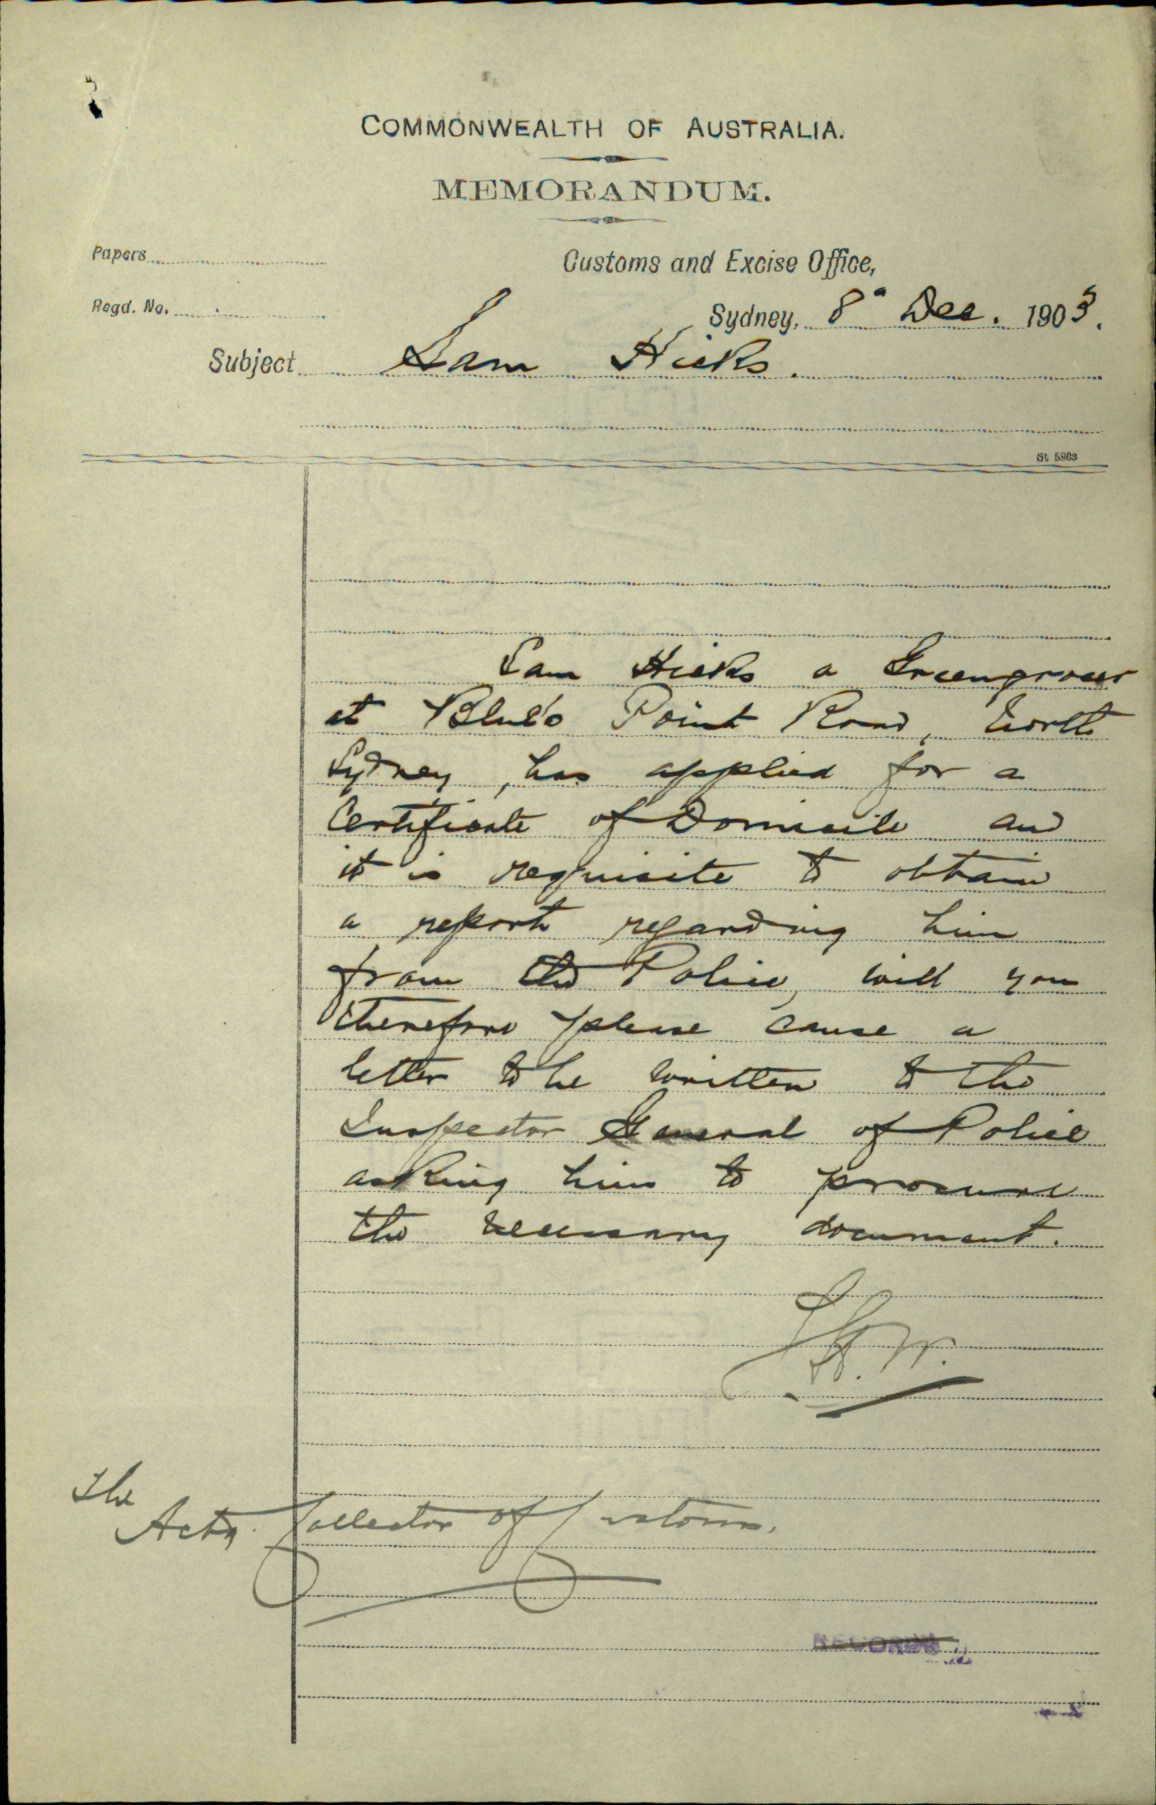 COMMONWEALTH OF AUSTRALIA.
MEMORANDUM.
Papers
Customs and Excise Office,
Regd. No.
Sydney, 8" Dec. 1903.
Subject Sam Hicks.
St. 5863
Sam Hicks a Greengrocer
at Blue's Point Road, North
Sydney, has applied for a
Certificate of Domicile and
it is requisite to obtain
a report regarding him
from the Police, will you
therefore please cause a
letter to be written to the
Inspector General of Police
asking him to procure
the necessary document.
The
Actg. Collector of Customs.
RECORDS